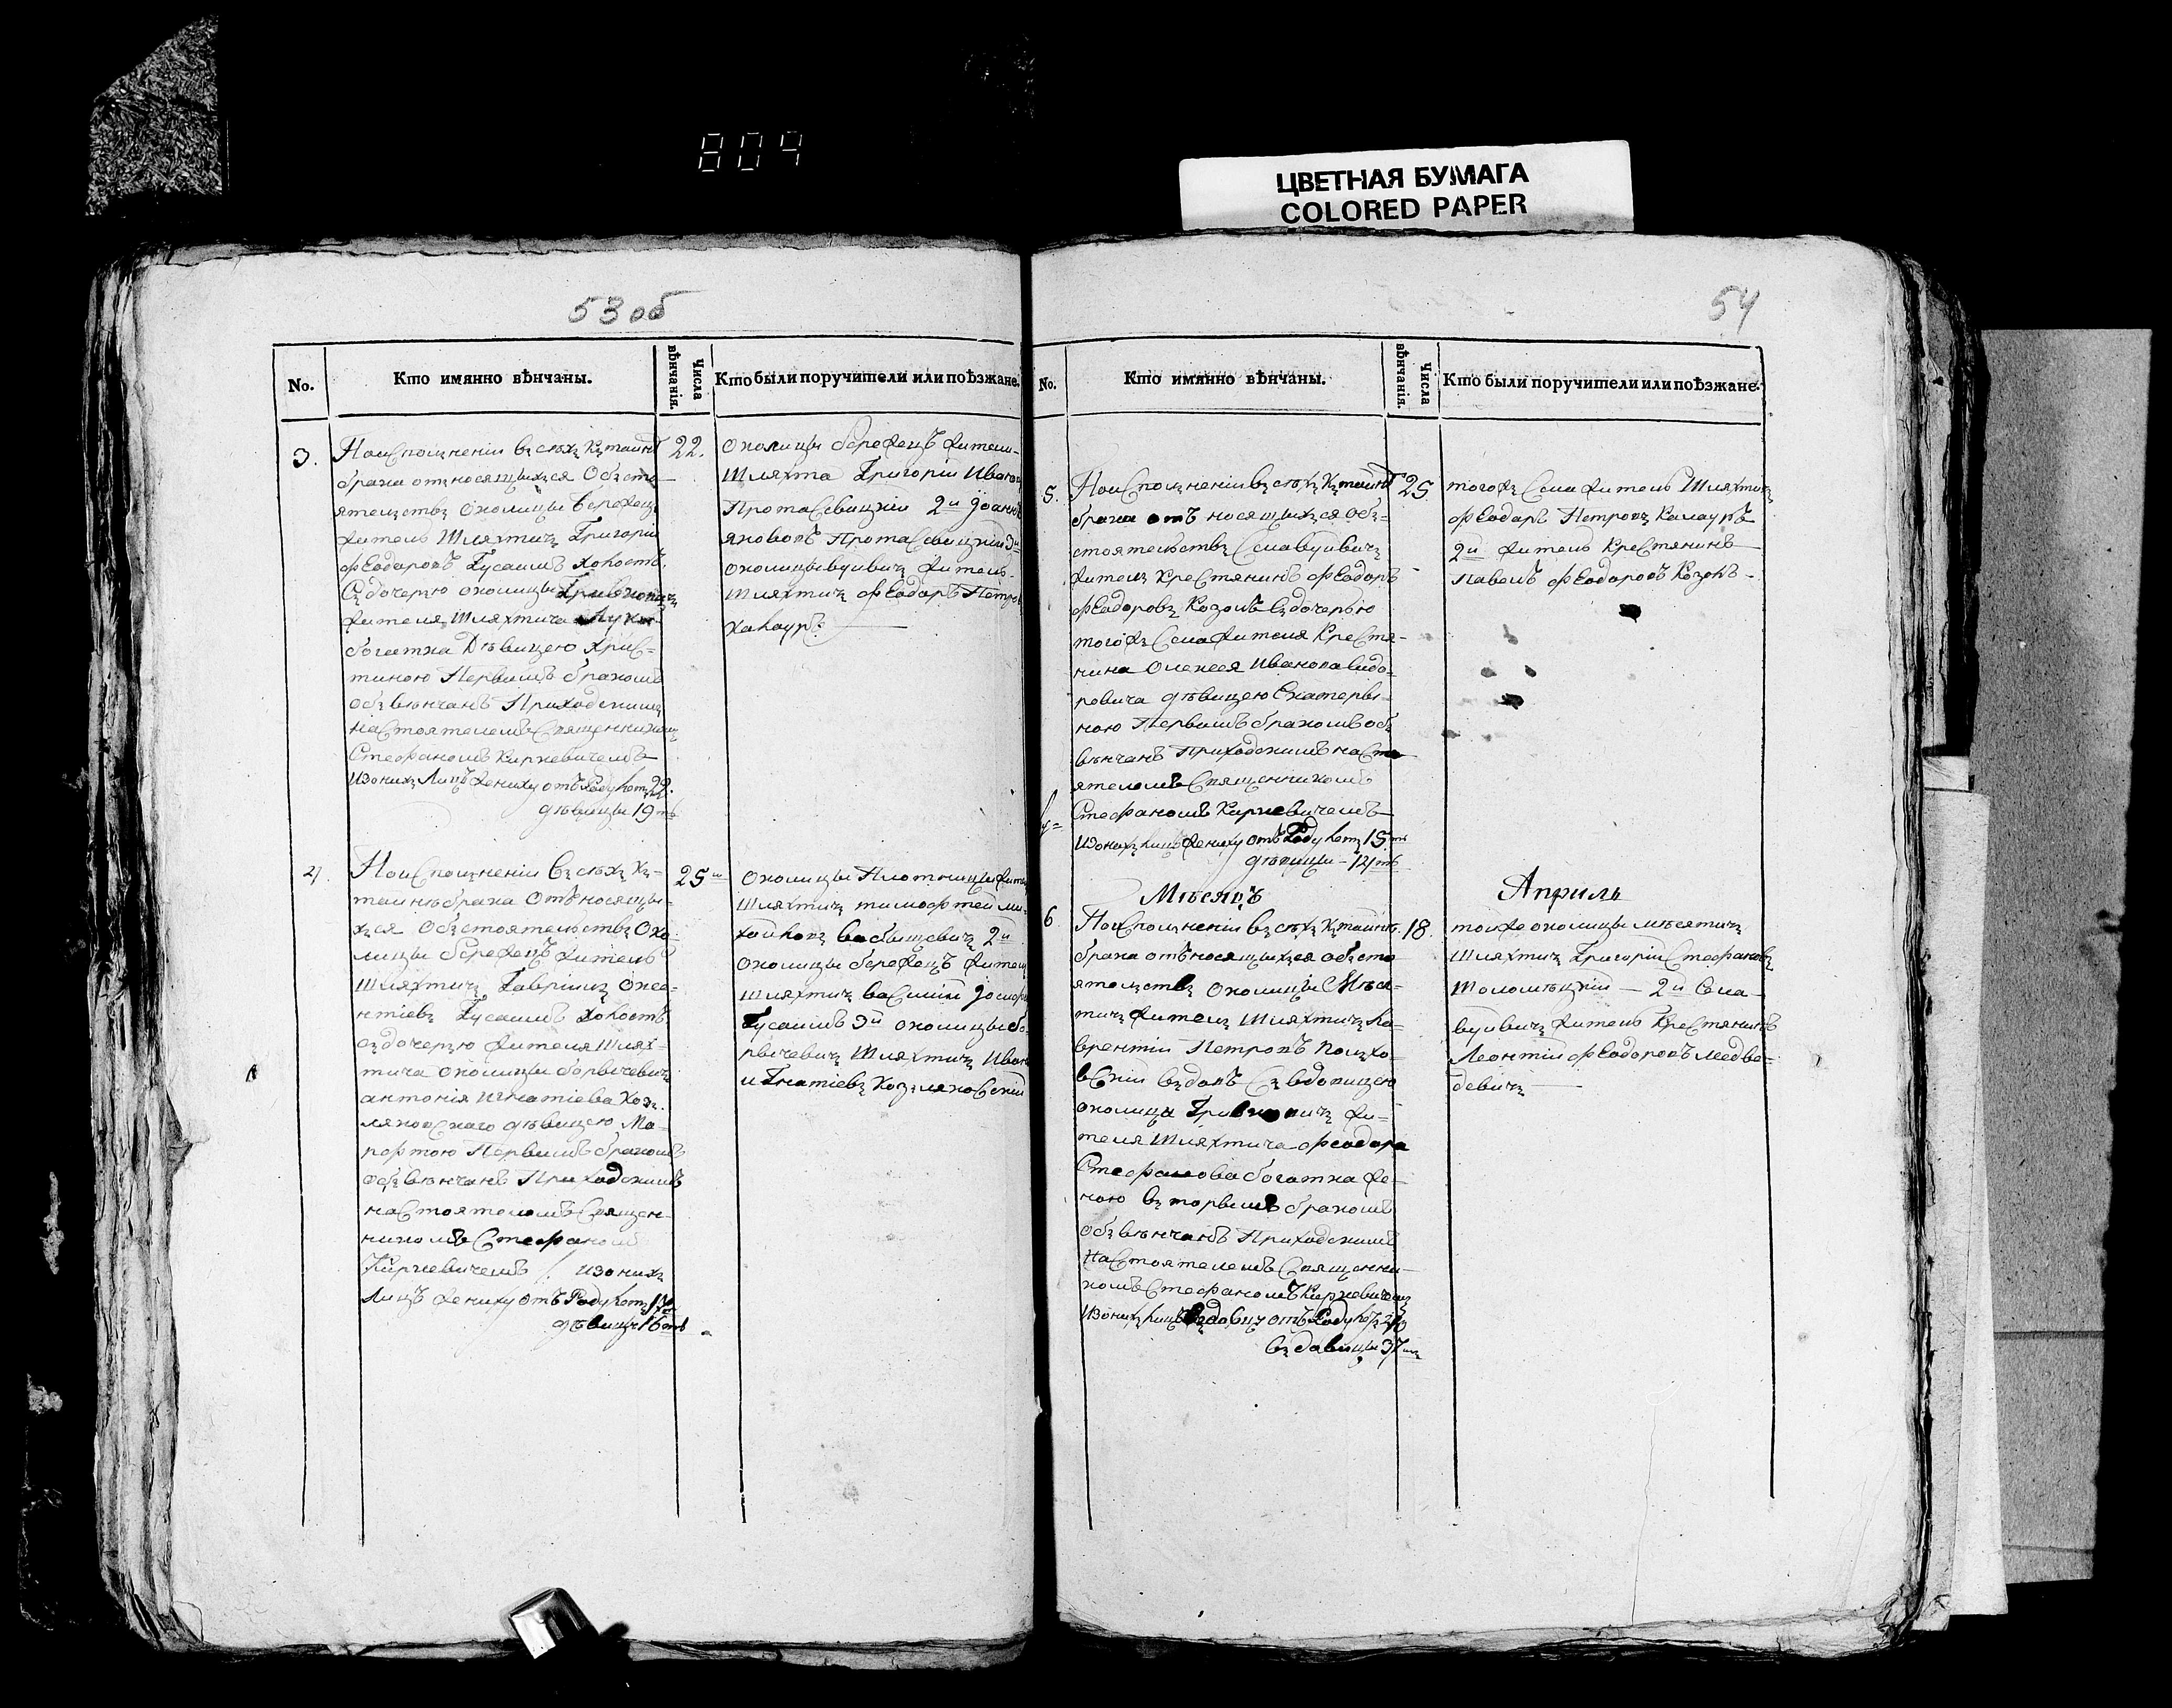 804
ЦВЕТНАЯ БУМАГА
COLORED PAPER
53 об
No.
Кто имянно вѣнчаны.
Числа вѣнчанія.
Кто были поручители или поѣзжане.
3.
По исполненіи всѣхъ къ таинѣ
брака относящихся обсто-
ятелствъ околицы Бережецъ
житель шляхтичъ Григорій
Феодоровъ Гусаимъ холостъ.
Съ дочерю околицы
жителя шляхтича
богатка Дѣвицею Хрис=
тиною Первымъ бракомъ
объ вѣнчанъ Приходскимъ
настоятелемъ Священникомъ
Стефаномъ Киркевичемъ
изоныхъ Лицъ жениху отъ Роду летъ 22.
дѣвицы 19ть
22.
околицы бережецъ жители-
Шляхта Григорій
Протасевицкій 2й Іоаннъ
яновъ Протасевицкій 3й
околицы вуйвичъ житель
шляхтич феодаръ Петровъ
Калауръ.
4.
По исполненіи всѣхъ къ-
таинѣ брака отъносящи-
хся обстоятельствъ Око-
лицы бережецъ житель
Шляхтичъ Гавріилъ
Гусаимъ Холостъ
съ дочерю жителя шлях-
тича околицы борвичевичъ
антонія игнатіева Коз-
ляковскаго дѣвицею Ма-
рфтою Первымъ бракомъ
объ вѣнчанъ Приходскимъ
настоятелемъ Священ-
никомъ Стефаномъ
Киркевичемъ / изоныхъ
Лицъ жениху отъ Роду летъ
дѣвицы 16ть
25
околицы Плотницы
Шляхтич тимофтей ми-
хайловъ 2й
околицы бережецъ житель
шляхтич василій
Гусаимъ 3й околицы бо-
рвичевичъ Шляхтичъ Иванъ
игнатіевъ Козляковскій
54
No.
Кто имянно вѣнчаны.
Числа вѣнчанія.
Кто были поручители или поѣзжане.
5.
По исполненіи всѣхъ къ таинѣ
брака отъ носящихся об-
стоятельствъ Села вуйвичъ
житель Крестянинъ Феодаръ
Феодоровъ Козолъ съ дочерью
тогожъ Села жителя Крестя-
нина Олексея Иванова Сидо-
ровича дѣвицею Екатери-
ною Первымъ бракомъ объ
вѣнчанъ Приходскимъ насто-
ятелемъ Священникомъ
Стефаномъ Киркевичемъ
изоныхъ лицъ жениху отъ Роду летъ 15ть
дѣвицы - 14ть
25
тогожъ Села житель Шляхтичъ
феодаръ Петровъ Калауръ
2й житель Крестянинъ
Павелъ феодоровъ Козолъ -
Мѣсяцъ
Априль
6
По исполненіи всѣхъ къ таинѣ
брака отъносящихся обсто-
ятелствъ околицы Мѣся-
тичъ житель шляхтичъ ла-
врентій Петровъ
въдовъ Съ вдовицею
околицы жи-
теля Шляхтича феодора
Стефанова богатка же-
ною вторымъ бракомъ
объ вѣнчанъ Приходскимъ
Настоятелемъ Священни-
комъ Стефаномъ Киркевичемъ
изоныхъ лицъ вдовцу отъ Роду
въдовицы 37
18.
тойже околицы мѣсятичъ
шляхтичъ Григорій Стефановъ
2й Села-
вуйвичъ житель Крестянинъ
Леонтій феодоровъ медве-
девичъ